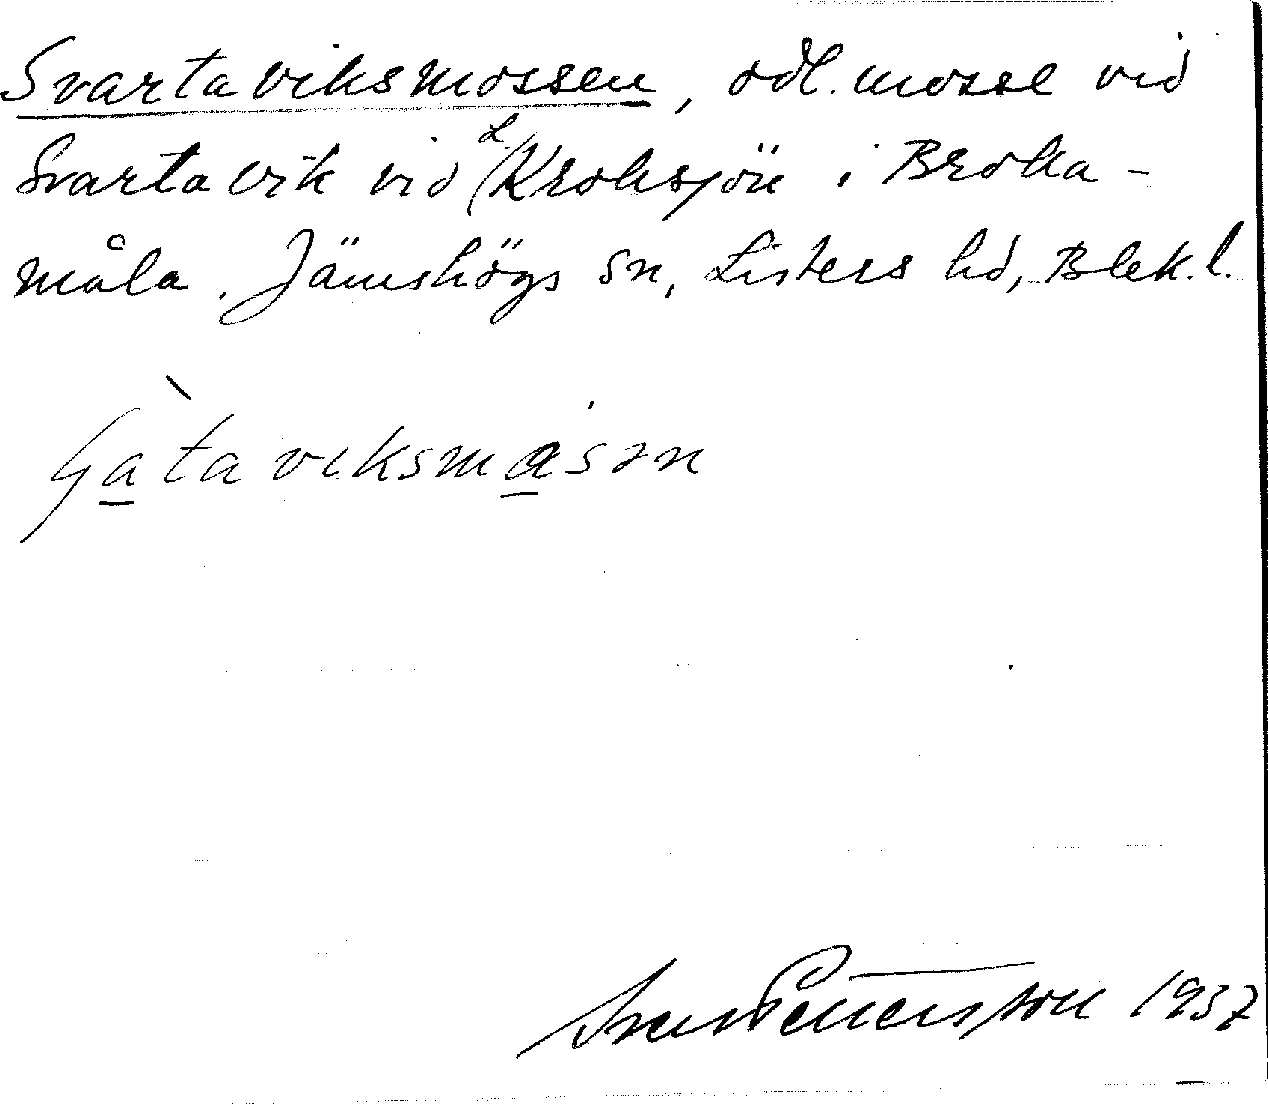 Svartaviksmossen, odl. mosse vid
Svartavik vid L Kroksjön i Broka-
måla. Jämshögs sn, Listers hd, Blek. l.
viksm
Sven Pettersson 1937